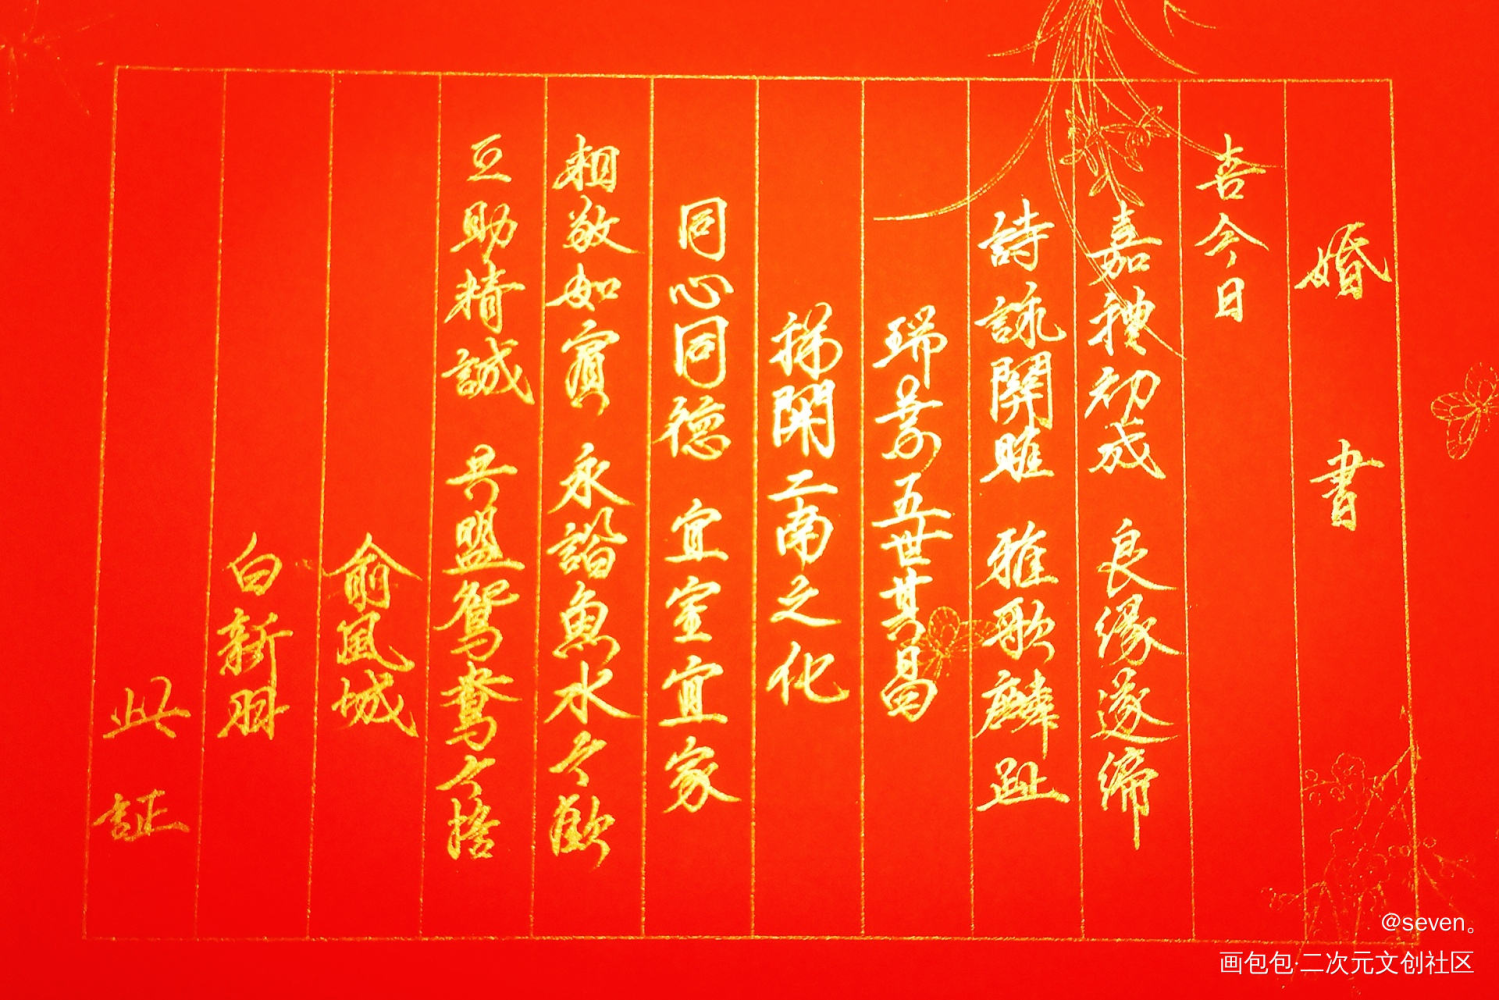 婚書
喜今日
嘉禮初成 良緣遂締
詩詠關雎 雅歌麟趾
瑞葉五世其昌
祥開二南之化
同心同德 宜室宜家
相敬如賓 永諧魚水之歡
互助精誠 共盟鴛鴦之誓
俞風城
白新羽
此証
@seven。
画包包·二次元文创社区